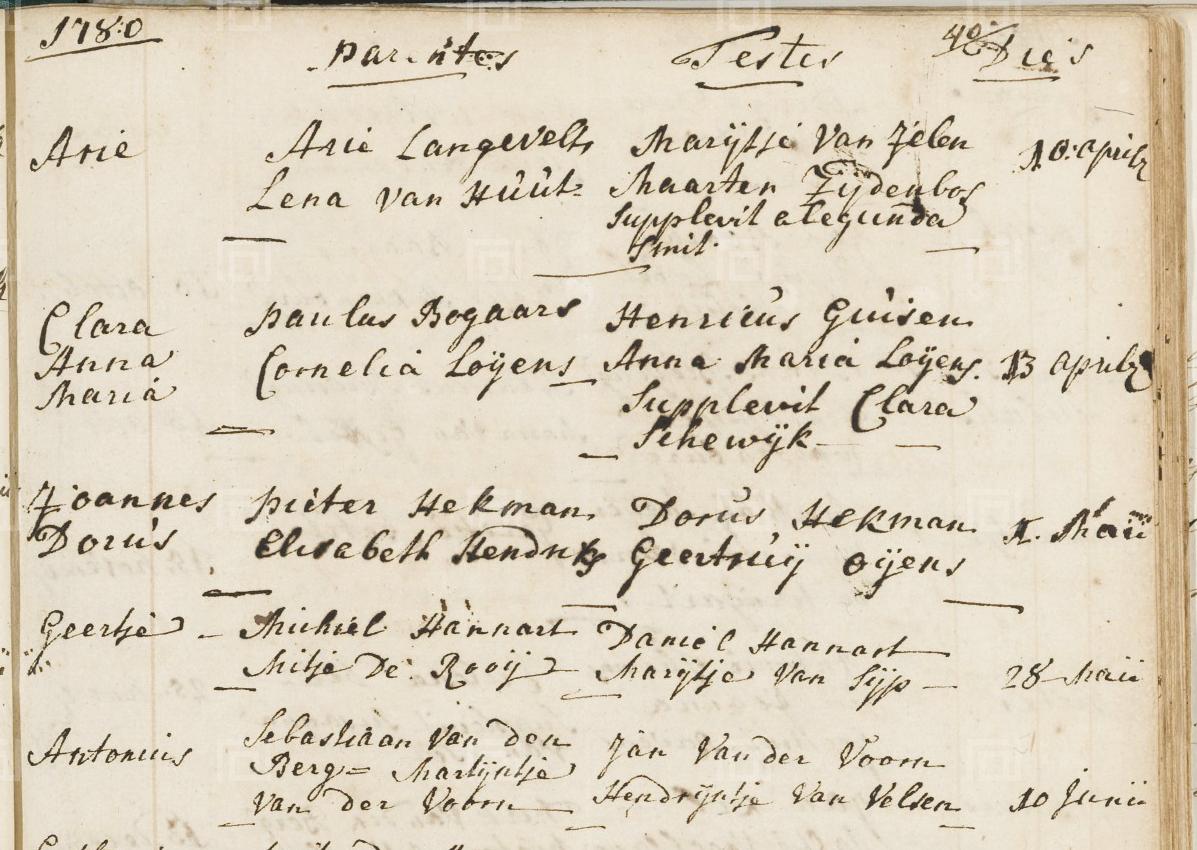 1780 parentes Testes 40 Dies
Arie Arie Langevelt Marijtje Van Zelen 10: aprilz
Lena van Hûût= Maarten Zijdenbos
Supplevit alegunda
Smit.
Clara Paulus Bogaars Henricus Guisen
Anna Cornelia Loÿens Anna Maria Loÿens. 13 aprilz
Maria Supplevit Clara
Schewijk
Joannes pieter Hekman Dorus Hekman 1. Maii
Dorus Elisabeth Hendriks Geertruij oijens
Geertje Michiel Hannart Daniel Hannart
Mitje De Rooij Marijtje Van Sijp 28 Maii
Antonius Sebastiaan Van den Jan Van der Voorn
Berg= Martijntje Hendrijntje Van Velsen 10 Junii
van der Voorn